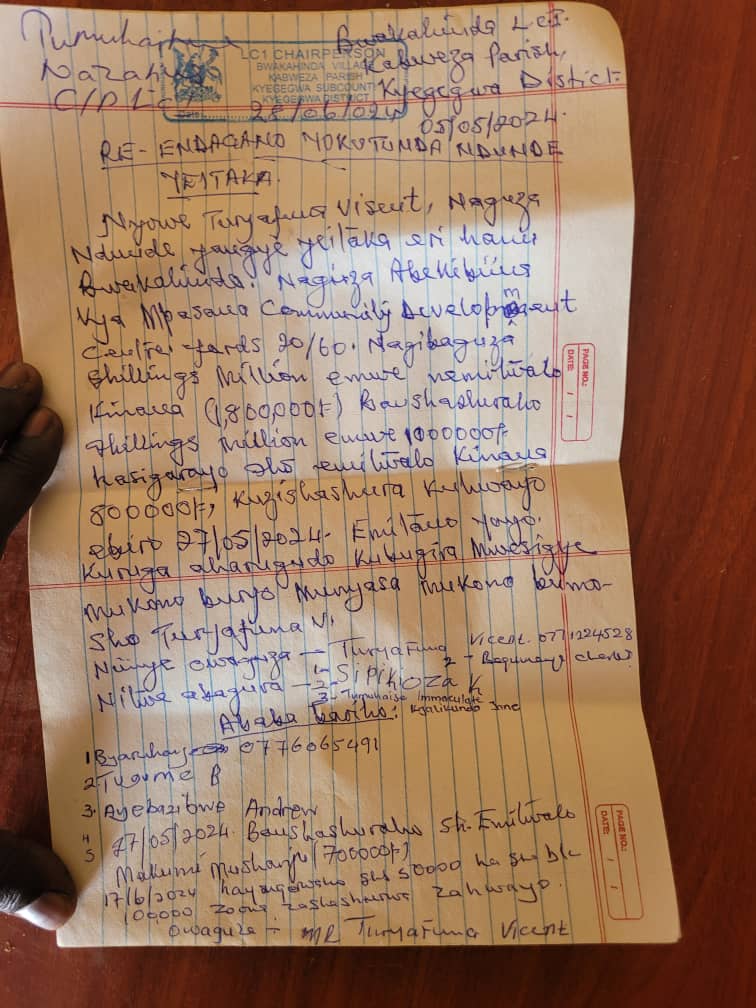 Bwakahinda Lc I.
Kabweza Parish,
Kyegegwa District
C/P Lc I
LC1 CHAIRPERSON
BWAKAHINDA VILLAGE
KABWEZA PARISH
KYEGEGWA SUBCOUNTY
KYEGEGWA DISTRICT
25/06/024
05/05/2024.
RE- ENDAGANO YOKUTUNDA NDUNDE
YEITAKA.
Nyowe Turyafuna Visent, Naguza
Ndunde yangye yeitaka eri hanu
Bwakahinda. Nagiiza Abekibiina
Kya Mpasana Community Development
Centre yards 20/60. Nagibaguza
Shillings Million emwe nemitwalo
Kinana (1,800,000/=) Baushashuraho
Shillings million emwe 1000000/=
hasigarayo Sho emitwalo Kinana
800000/=, kuzishashura kuhwayo
ebiro 27/05/2024. Emitano yayo.
Kuruga aharugudo Kubugira Mwesigye
mukono buryo Munyasa mukono bumo-
sho Turyafuna V.
Niinye owaguza - Turyafuna Vicent. 0771224528
Nitwe abagura - 1- Sipikioza K
2-
3- Tumuhaise Immaculate
Kyalikunda Jane
Ababa bariho:
1 0776065491
2 B
3. Ayebazibwe Andrew
4 27/05/2024. Baushashuraho Sh. Emitwalo
5 Makumi Mushanju (700000/=)
17/6/2024 shs 50000
100,000 zahwayo.
Owaguza - MR Turyafuna Vicent
PAGE NO.:
DATE: / /
PAGE NO.:
DATE: / /